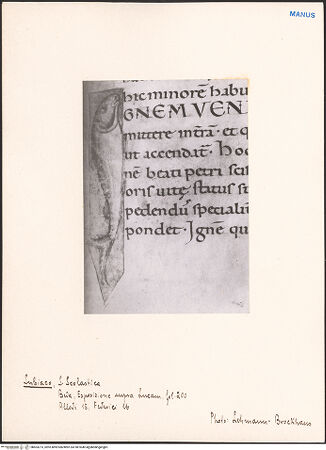 MANUS
hic minorē habu
GNEM VEN
mittere in t̄rā· et q
ut accendat̄· Hoc
nē beati petri scis
oris vitę status st
pedendū specialit
pondet· Ignē qu
Subiaco, S. Scolastica
Beda, Esposizione supra Lucam, fol. 200
Allodi 15. Federici 16
Photo: Lehmann-Brockhaus